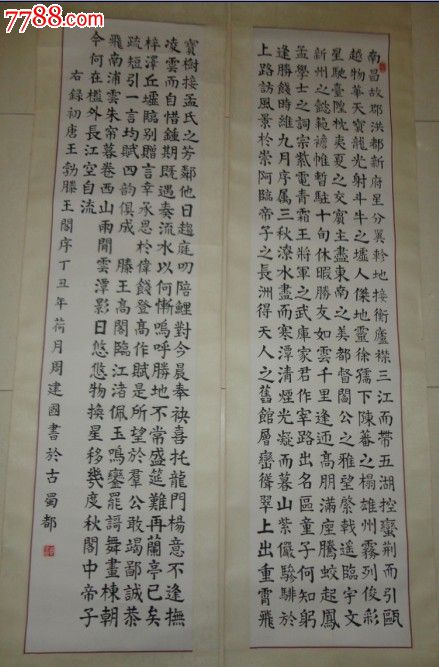 7788.com
南昌故郡洪都新府星分翼軫地接衡廬襟三江而帶五湖控蠻荊而引甌
越物華天寶龍光射斗牛之墟人傑地靈徐孺下陳蕃之榻雄州霧列俊彩
星馳臺隍枕夷夏之交賓主盡東南之美都督閻公之雅望棨戟遙臨宇文
新州之懿範襜帷暫駐十旬休暇勝友如雲千里逢迎高朋滿座騰蛟起鳳
孟學士之詞宗紫電青霜王將軍之武庫家君作宰路出名區童子何知躬
逢勝餞時維九月序属三秋潦水盡而寒潭清煙光凝而暮山紫儼驂騑於
上路訪風景於崇阿臨帝子之長洲得天人之舊館層巒聳翠上出重霄飛
寶樹接孟氏之芳鄰他日趨庭叨陪鯉對今晨奉袂喜托龍門楊意不逢撫
凌雲而自惜鍾期既遇奏流水以何慚嗚呼勝地不常盛筵難再蘭亭已矣
梓澤丘墟臨別贈言幸承恩於偉餞登高作賦是所望於羣公敢竭鄙誠恭
疏短引一言均賦四韵俱成 滕王高閣臨江渚佩玉鳴鑾罷謌舞畫棟朝
飛南浦雲朱帘暮卷西山雨閒雲潭影日悠悠物換星移幾度秋閣中帝子
今何在檻外長江空自流
右錄初唐王勃滕王閣序丁丑年荷月周建國書於古蜀都